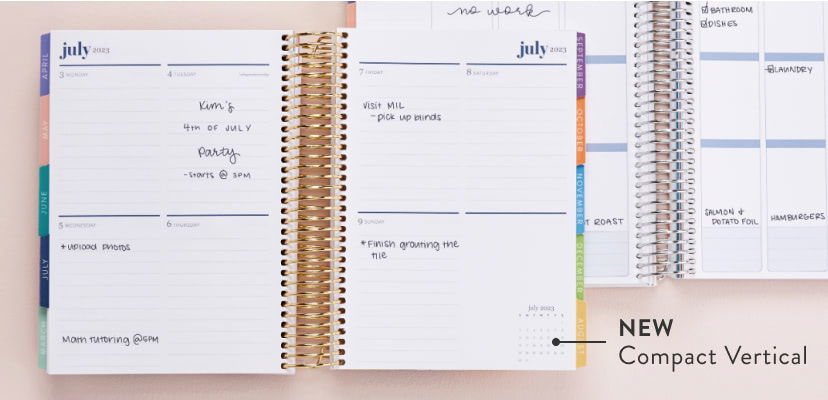 no work
☑BATHROOM
☑DISHES
☑LAUNDRY
T ROAST
SALMON +
POTATO FOIL
HAMBURGERS
APRIL
MAY
JUNE
JULY
MARCH
july 2023
3 MONDAY
4 TUESDAY
Kim's
4TH OF JULY
Party
-STARTS @ 3PM
5 WEDNESDAY
6 THURSDAY
+UPLOAD PHOTOS
Math tutoring @5PM
july 2023
7 FRIDAY
8 SATURDAY
Visit MIL
-pick up blinds
9 SUNDAY
*Finish grouting the
tile
july 2023
SEPTEMBER
OCTOBER
NOVEMBER
DECEMBER
AUGUST
NEW
Compact Vertical